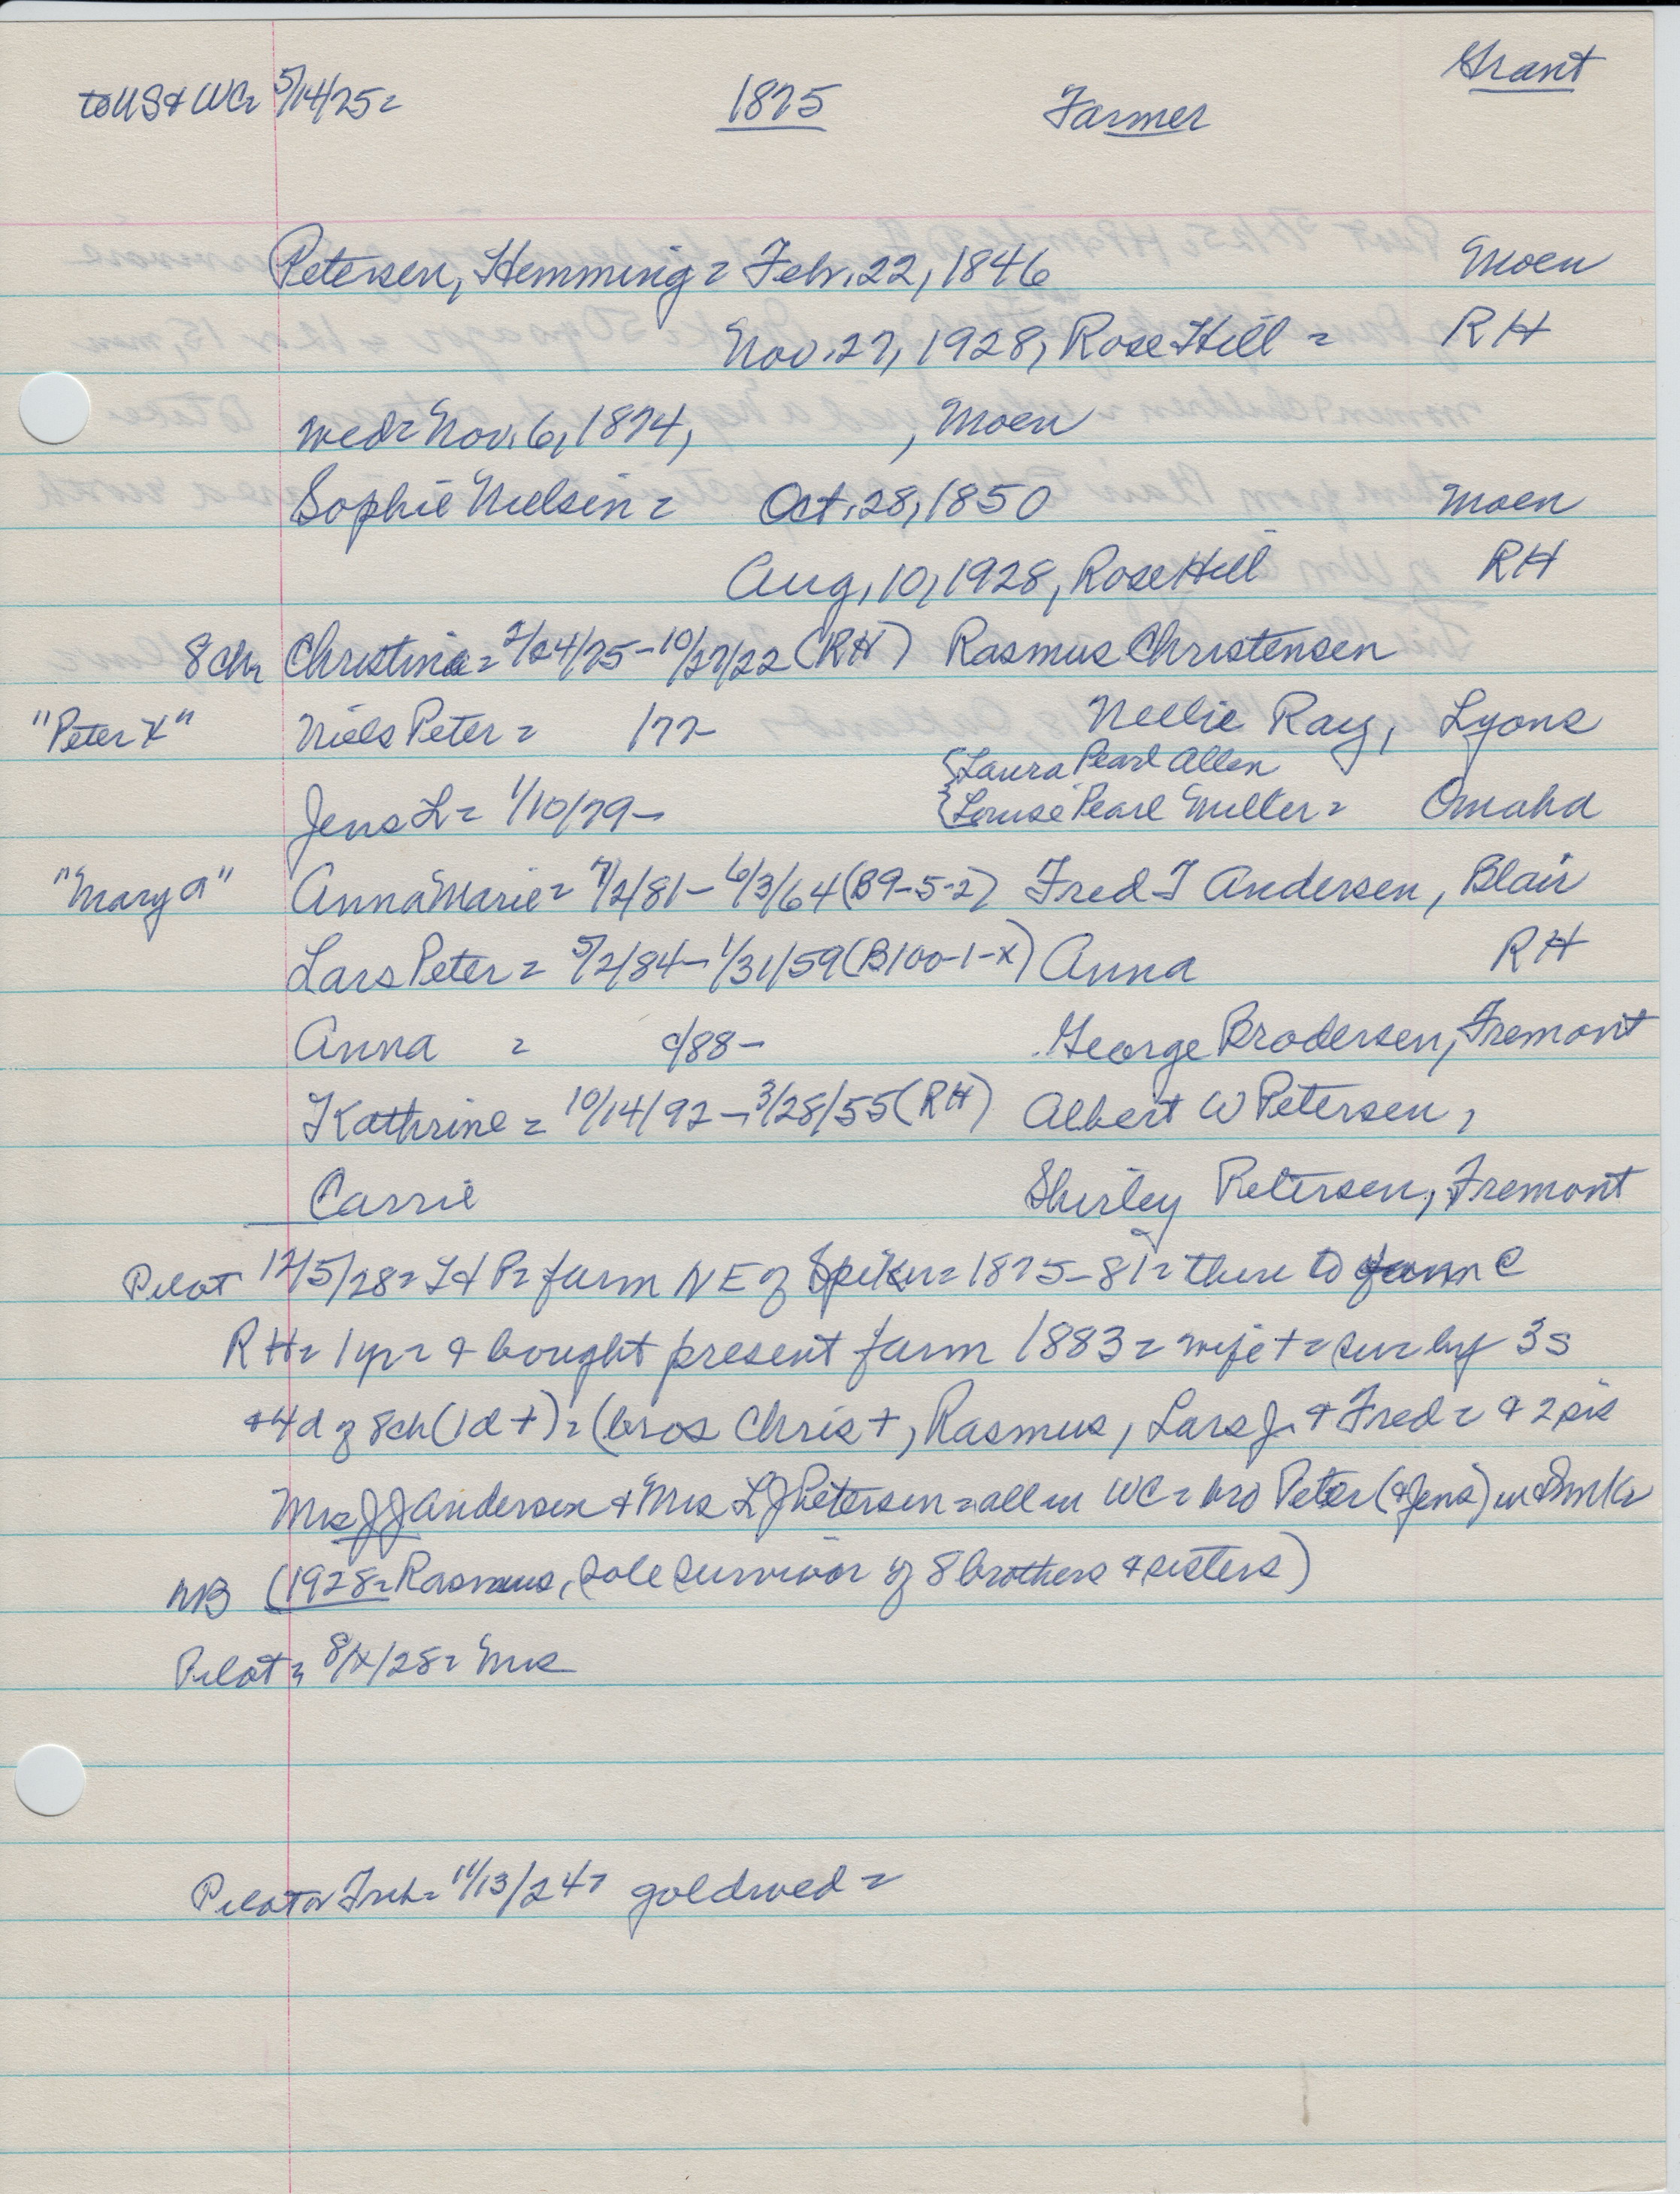 to US & WC= 5/14/75= 1875 Farmer Grant
Petersen, Hemming = Feb. 22, 1846 Moen
Nov. 27, 1928, Rose Hill = RH
wed= Nov. 6, 1874, , Moen
Sophie Nielsen = Oct. 28, 1850 Moen
Aug, 10, 1928, Rose Hill RH
8 ch= Christina = 2/24/75 - 10/27/22 (RH) Rasmus Christensen
"Peter X" Niels Peter = 177- Nellie Ray, Lyons
{Laura Pearl Allen
Jens L = 1/10/79- {Louise Pearl Miller = Omaha
"Mary A" Anna Marie = 7/2/81 - 6/3/64 (B9-5-2) Fred T Andersen, Blair
Lars Peter = 5/2/84 - 1/31/59 (B100-1-X) Anna RH
Anna = c/88 - George Brodersen, Fremont
Kathrine = 10/14/92 - 3/28/55 (RH) Albert W Petersen,
Carrie Shirley Petersen, Fremont
Pilot 12/5/28= farm NE of Spiker= 1875-81= then to farm C
RH= 1 yr= & bought present farm 1883= wife += sur by 3s
+4d of 8ch (1d +)= (bros Chris +, Rasmus, Lars J. & Fred= & 2 sis
Mrs J J Andersen & Mrs L J Petersen= all in WC= bro Peter (& Jens) in Dmk=
NB (1928= Rasmus, sole survivor of 8 brothers & sisters)
Pilot= 8/X/28= Mrs
Pilot 11/13/24= gold wed =